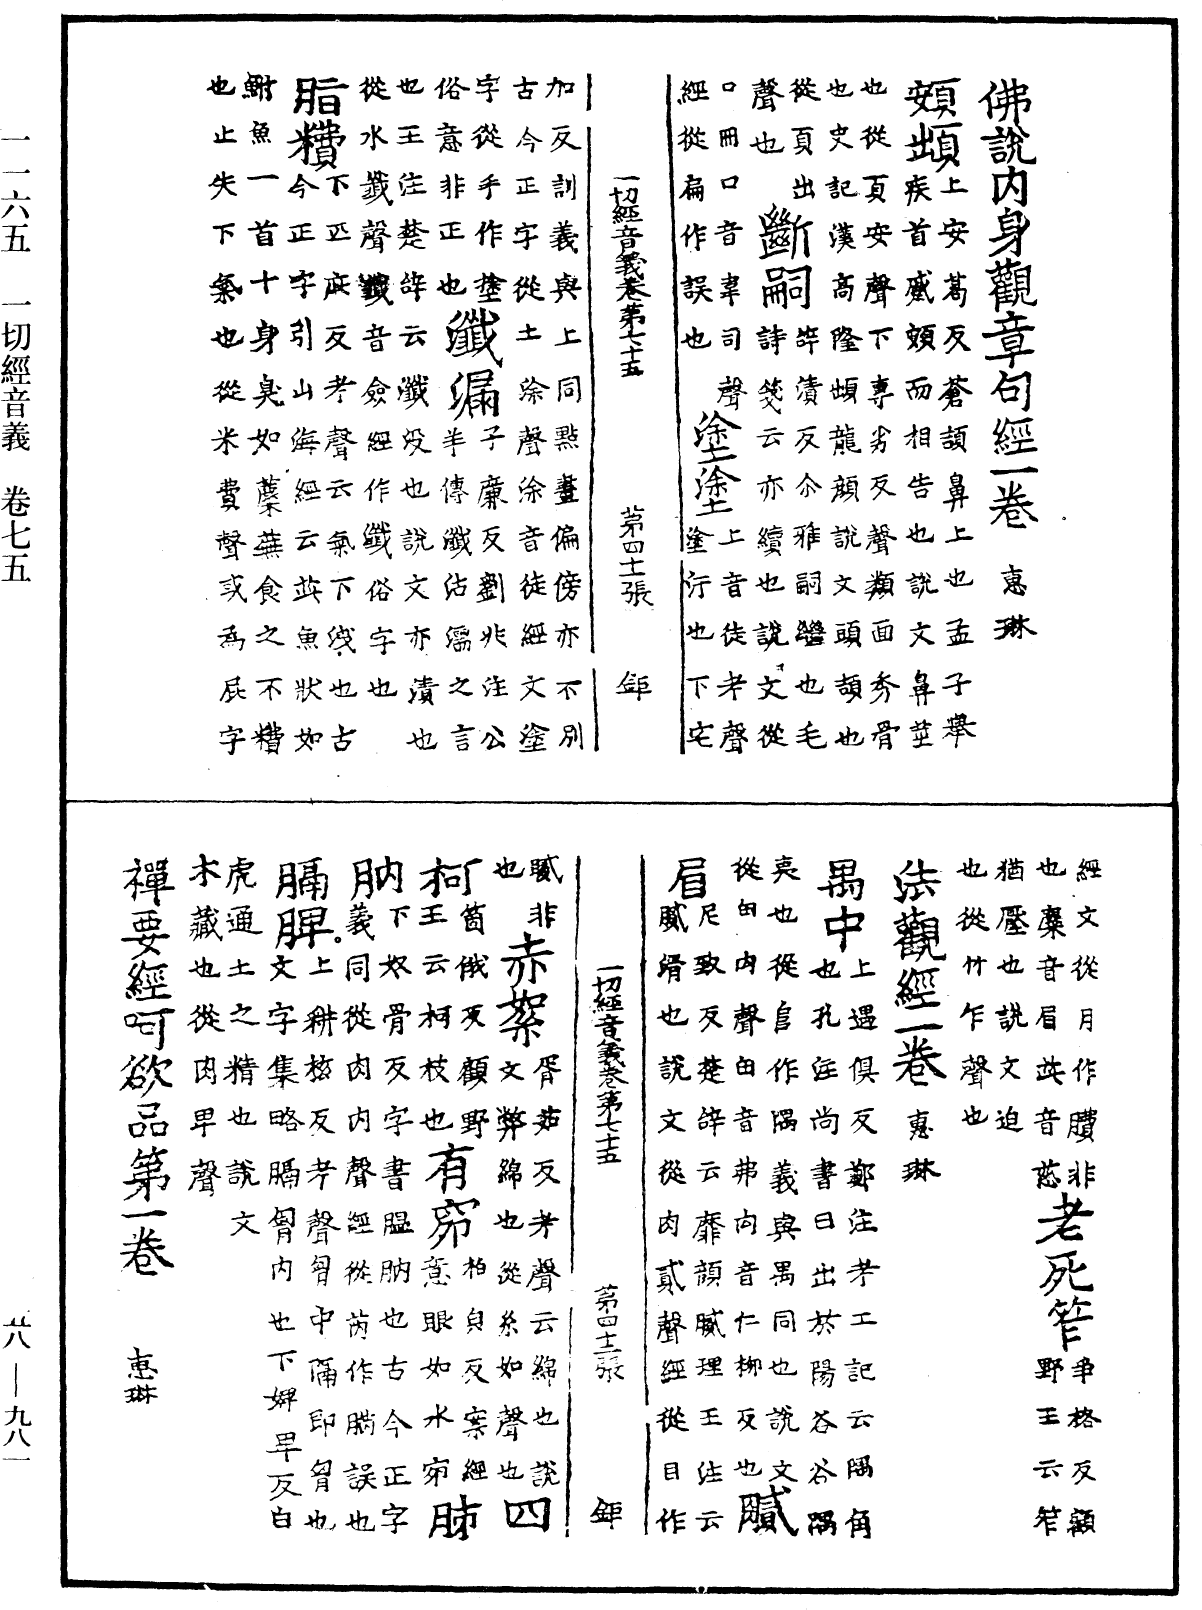 佛說内身觀章句經一卷 惠琳
頞䪼
上安葛反蒼頡鼻上也孟子舉
疾首蹙頞而相告也說文鼻莖
也從頁安聲下專劣反聲類面秀骨
也史記漢高隆䪼龍顏說文頭頡也
從頁出
聲也
斷嗣
辝漬反尒雅嗣繼也毛
詩箋云亦續也說文從
口冊口音韋司聲
經從扁作誤也
塗塗
上音徒考聲
塗污也下宅
一切經音義卷第七十五 第四十一張 鉅
加反訓義與上同點畫偏傍亦不別
古今正字從土涂聲涂音徒經文塗
字從手作塗
俗意非正也
瀸漏
子廉反劉兆注公
羊傳瀸沾濡之言
也王注楚辝云瀸没也說文亦漬也
從水韱聲韱音僉經作纖俗字也
脂䊧
下匹痱反考聲云氣下洩也古
今正字引山海經云茈魚狀如
鮒魚一首十身臭如蘪蕪食之不䊧
也止失下氣也從米費聲或為屁字
經文從月作膹非
也麋音眉茈音慈
老死笮
爭格反顧
野王云笮
猶壓也說文迫
也從竹乍聲也
法觀經一卷 惠琳
禺中
上遇俱反鄭注考工記云隅角
也孔注尚書曰出於陽谷谷隅
夷也從𨸏作隅義與禺同也說文
從甶内聲甶音弗内音仁柳反也
膩眉
尼致反楚辝云靡顏膩理王注云
膩滑也說文從肉貳聲經從目作
一切經音義卷第七十五 第四十二張 鉅
膩非
也
赤絮
胥茹反考聲云綿也說
文弊綿也從糸如聲也
四柯
箇俄反顧野
王云柯枝也
有窌
栢皃反案經
意眼如水窌
肺肭
下奴骨反字書膃肭也古今正字
義同從肉内聲經從芮作䏏誤也
膈脾
上耕核反考聲胷中隔即胷也
文字集略膈胷内也下婢卑反白
虎通土之精也說文
木藏也從肉卑聲
禪要經呵欲品第一卷 惠琳
一一六五 一切經音義 卷七五
廿八—九八一